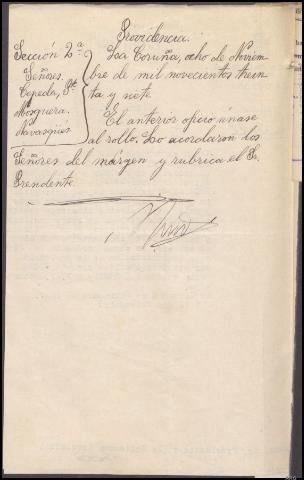 Providencia.
Sección 2ª
Señores.
Cepeda, Pte
Mosquera.
Navasqués
La Coruña, ocho de Noviem
bre de mil novecientos trein
ta y siete.
El anterior oficio únase
al rollo. Lo acordaron los
Señores del márgen y rubrica el Sr.
Presidente.